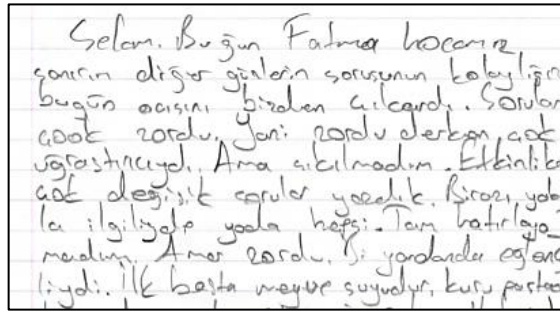 Selam. Bugün Fatma hocamız
sanırım diğer günlerin sorusunun kolaylığın
bugün acısını bizden çıkardı. Sorular
çook zordu. Yani zordu derken çok
uğraştırıcıydı. Ama sıkılmadım. Etkinlikte
çok değişik sorular yazdık. Birazı yaş
la ilgiliydi yada hepsi. Tam hatırlaya_
madım. Ama zordu. Bi yandanda eğlence
liydi. İlk başta meyve suyudur, kuru pasta